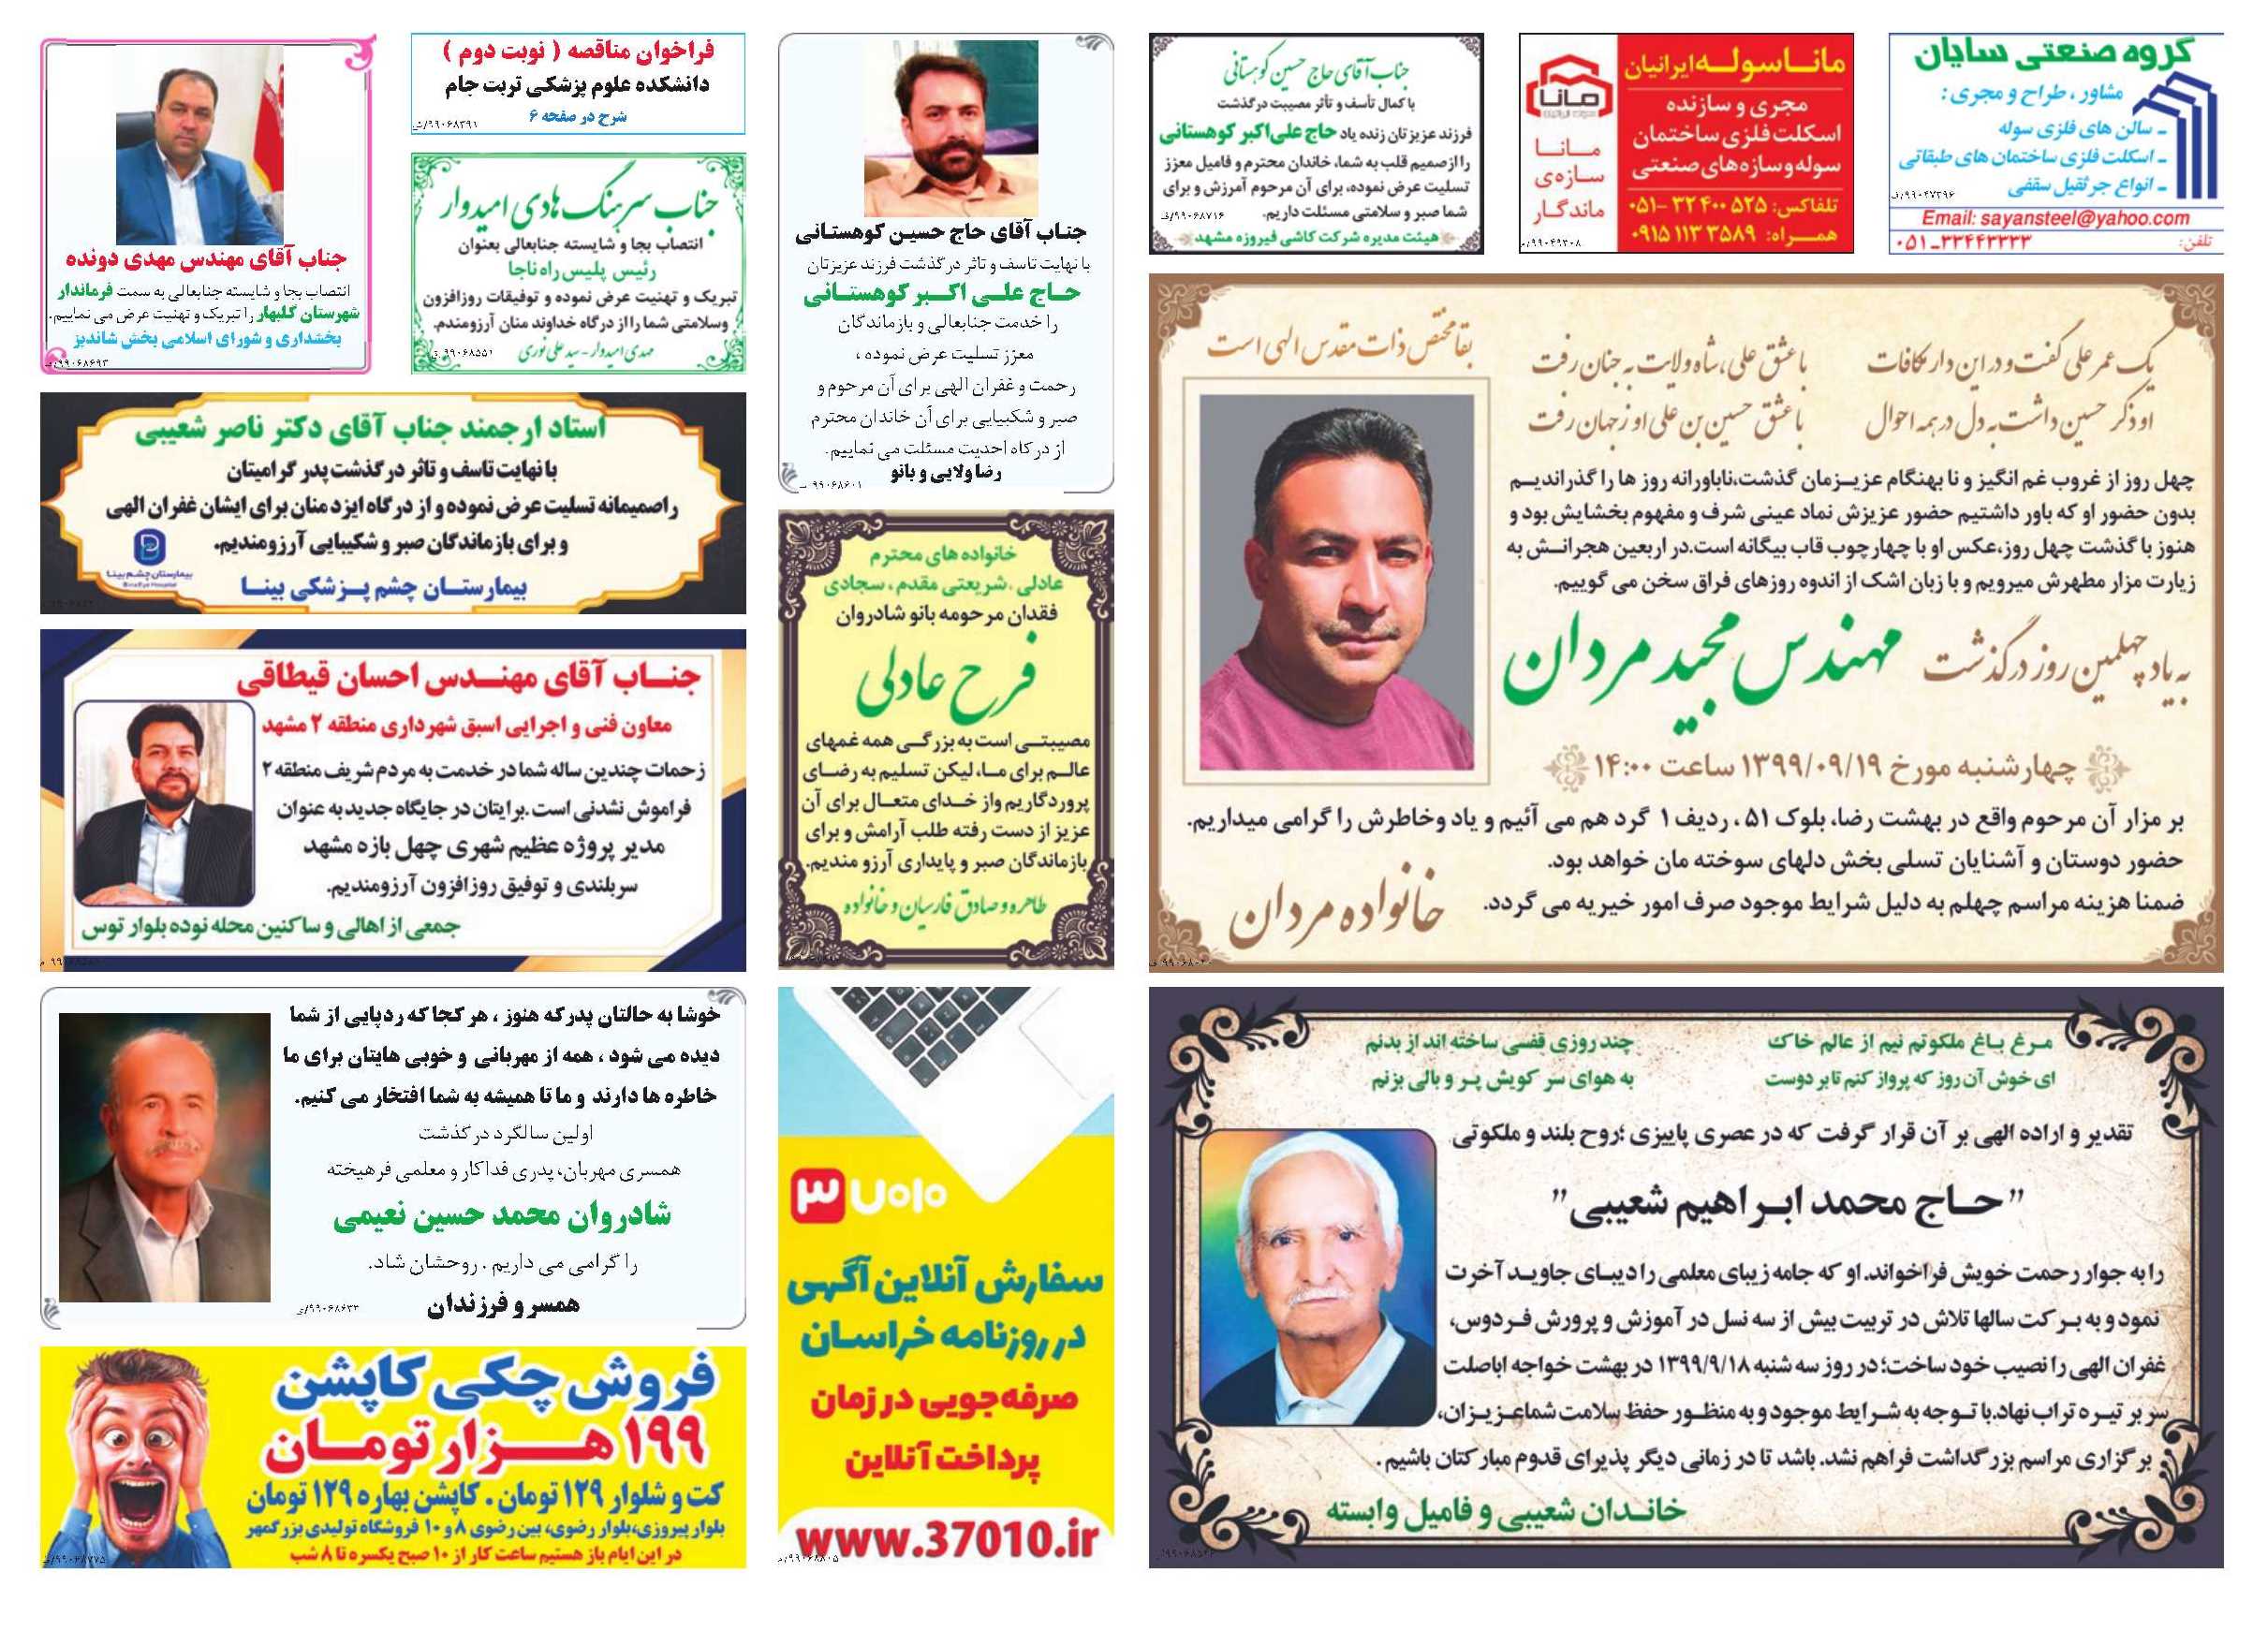 گروه صنعتی سایان
مشاور ، طراح و مجری :
ـ سالن های فلزی سوله
ـ اسکلت فلزی ساختمان های طبقاتی
ـ انواع جرثقیل سقفی
۹۹۰۴۷۳۹۶/ف
Email: sayansteel@yahoo.com
تلفن: ۳۳۴۴۳۳۳۳-۰۵۱
ماناسوله ایرانیان
مجری و سازنده
اسکلت فلزی ساختمان
سوله و سازه های صنعتی
تلفاکس: ۵۲۵ ۴۰۰ ۳۲ -۰۵۱
همــراه: ۳۵۸۹ ۱۱۳ ۰۹۱۵
مانا
مــانــا
سازه‌ی
ماندگـار
جناب آقای حاج حسین کوهستانی
با کمال تأسف و تأثر مصیبت درگذشت
فرزند عزیزتان زنده یاد حاج علی اکبر کوهستانی
را از صمیم قلب به شما، خاندان محترم و فامیل معزز
تسلیت عرض نموده، برای آن مرحوم آمرزش و برای
شما صبر و سلامتی مسئلت داریم.
۹۹۰۶۸۷۱۶/ف
هیئت مدیره شرکت کاشی فیروزه مشهد
بقا مختص ذات مقدس الهی است
یک عمر علی گفت و در این دار مکافات
با عشق علی، شاه ولایت به جنان رفت
او ذکر حسین داشت به دل در همه احوال
با عشق حسین بن علی او ز جهان رفت
چهل روز از غروب غم انگیز و نا بهنگام عزیـزمان گذشت،ناباورانه روز ها را گذراندیـم
بدون حضور او که باور داشتیم حضور عزیزش نماد عینی شرف و مفهوم بخشایش بود و
هنوز با گذشت چهل روز،عکس او با چهارچوب قاب بیگانه است.در اربعین هجرانـش به
زیارت مزار مطهرش میرویم و با زبان اشک از اندوه روزهای فراق سخن می گوییم.
به یاد چهلمین روز درگذشت مهندس مجید مردان
چهارشنبه مورخ ۱۳۹۹/۰۹/۱۹ ساعت ۱۴:۰۰
بر مزار آن مرحوم واقع در بهشت رضا، بلوک ۵۱ ، ردیف ۱ گرد هم می آئیم و یاد وخاطرش را گرامی میداریم.
حضور دوستان و آشنایان تسلی بخش دلهای سوخته مان خواهد بود.
ضمنا هزینه مراسم چهلم به دلیل شرایط موجود صرف امور خیریه می گردد.
خانواده مردان
مـرغ بـاغ ملکوتم نیم از عالم خاک
چند روزی قفسی ساخته اند از بدنم
ای خوش آن روز که پرواز کنم تا بر دوست
به هوای سر کویش پـر و بالی بزنم
تقدیر و اراده الهی بر آن قرار گرفت که در عصری پاییزی ؛روح بلند و ملکوتی
"حـاج محمد ابـراهیم شعیبی"
را به جوار رحمت خویش فراخواند. او که جامه زیبای معلمی را دیبـای جاویـد آخرت
نمود و به بـرکت سالها تلاش در تربیت بیش از سه نسل در آموزش و پرورش فـردوس،
غفران الهی را نصیب خود ساخت؛ در روز سه شنبه ۱۳۹۹/۹/۱۸ در بهشت خواجه اباصلت
سر بر تیـره تراب نهاد.با تـوجه به شـرایط موجود و به منظـور حفظ سلامت شما عـزیـزان،
برگزاری مراسم بزرگداشت فراهم نشد. باشد تا در زمانی دیگر پذیرای قدوم مبارکتان باشیم .
خانـدان شعیبی و فامیل وابسته
جنـاب آقای حاج حسیـن کوهستـانی
با نهایت تاسف و تاثر درگذشت فرزند عزیزتان
حـاج علـی اکـبر کوهستـانی
را خدمت جنابعالی و بازماندگان
معزز تسلیت عرض نموده ،
رحمت و غفران الهی برای آن مرحوم و
صبر و شکیبایی برای آن خاندان محترم
از درگاه احدیت مسئلت می نماییم .
رضا ولایی و بانو
۹۹۰۶۸۶۰۱
خانواده های محترم
عادلی ، شریعتی مقدم ، سجادی
فقدان مرحومه بانو شادروان
فرح عادلی
مصیبتـی است به بزرگـی همه غمهای
عالـم برای مـا، لیکن تسلیم به رضـای
پروردگاریم و از خـدای متعـال برای آن
عزیز از دست رفته طلب آرامش و برای
بازماندگان صبر و پایداری آرزو مندیم.
طاهره و صادق فارسیان و خانواده
سفارش آنلاین آگهی
در روزنامه خراسان
صرفه جویی در زمان
پرداخت آنلاین
www.37010.ir
۹۹۰۶۸۸۰۵
فراخوان مناقصه ( نوبت دوم )
دانشکده علوم پزشکی تربت جام
شرح در صفحه ۶
۹۹۰۶۸۳۹۱/ش
جناب سرهنگ هادی امیدوار
انتصاب بجا و شایسته جنابعالی بعنوان
رئیس پلیس راه ناجا
تبریک و تهنیت عرض نموده و توفیقات روزافزون
وسلامتی شما را از درگاه خداوند منان آرزومندم.
مهدی امیدوار - سید علی نوری
۹۹۰۶۸۵۵۱
جناب آقای مهندس مهدی دونده
انتصاب بجا و شایسته جنابعالی به سمت فرماندار
شهرستان گلبهار را تبریک و تهنیت عرض می نماییم.
بخشداری و شورای اسلامی بخش شاندیز
۹۹۰۶۸۶۹۳
استاد ارجمند جناب آقای دکتر ناصر شعیبی
با نهایت تاسف و تاثر درگذشت پدر گرامیتان
را صمیمانه تسلیت عرض نموده و از درگاه ایزد منان برای ایشان غفران الهی
و برای بازماندگان صبر و شکیبایی آرزومندیم.
بیمارستان چشم بینا
Bina Eye Hospital
بیمارستـان چشم پـزشکی بینـا
جنـاب آقای مهنـدس احسان قیطاقی
معاون فنی و اجرایی اسبق شهرداری منطقه ۲ مشهد
زحمات چندین ساله شما در خدمت به مردم شریف منطقه ۲
فراموش نشدنی است .برایتان در جایگاه جدید به عنوان
مدیر پروژه عظیم شهری چهل بازه مشهد
سربلندی و توفیق روزافزون آرزومندیم.
جمعی از اهالی و ساکنین محله نوده بلوار توس
خوشا به حالتان پدرکه هنوز ، هر کجا که ردپایی از شما
دیده می شود ، همه از مهربانی و خوبی هایتان برای ما
خاطره ها دارند و ما تا همیشه به شما افتخار می کنیم.
اولین سالگرد درگذشت
همسری مهربان، پدری فداکار و معلمی فرهیخته
شادروان محمد حسین نعیمی
را گرامی می داریم . روحشان شاد.
همسر و فرزندان
۹۹۰۶۸۶۳۳/ی
فروش چکی کاپشن
۱۹۹ هـــزار تومـــان
کت و شلوار ۱۲۹ تومان . کاپشن بهاره ۱۲۹ تومان
بلوار پیروزی،بلوار رضوی، بین رضوی ۸ و ۱۰ فروشگاه تولیدی بزرگمهر
در این ایام باز هستیم ساعت کار از ۱۰ صبح یکسره تا ۸ شب
۹۹۰۶۸۷۷۵